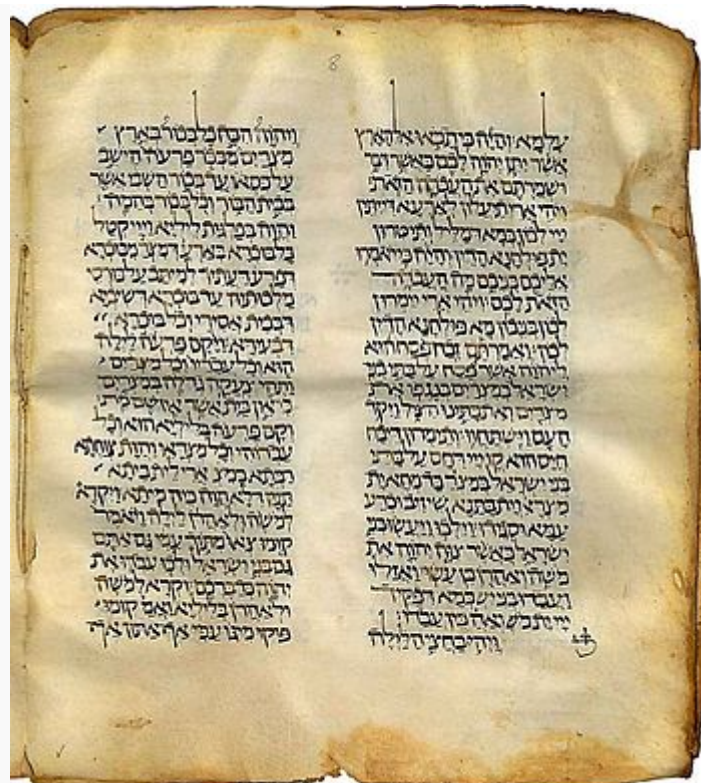 8
עלמא והיה כי תבאו אל הארץ
אשר יתן יהוה לכם כאשר דבר
ושמרתם את העבדה הזאת
ויהי ארי תעלון לארעא דייתין
ייי לכון כמא דמליל ותיטרון
ית פולחנא הדין והיה כי יאמרו
אליכם בניכם מה העבדה
הזאת לכם ויהי ארי יימרון
לכון בניכון מא פולחנא הדין
לכון ואמרתם זבח פסח הוא
ליהוה אשר פסח על בתי בני
ישראל במצרים בנגפו את
מצרים ואת בתינו הציל ויקד
העם וישתחוו ותימרון דיבח
חייס הוא קדם ייי דחס על בתי
בני ישראל במצר כד מחא ית
מצראי וית בתנא שיזיב וכרע
עמא וסגידו וילכו ויעשו בני
ישראל כאשר צוה יהוה את
משה ואהרן כן עשו ואזלו
ועבדו בני יש כמא דפקיד
ייי ית מש ואה כין עבדו
ויהי בחצי הלילה
ויהוה הכה כל בכור בארץ
מצרים מבכר פרעה הישב
על כסאו עד בכור השבי אשר
בבית הבור וכל בכור בהמה
והוה בפלגות ליליא וייי קטל
כל בוכרא בארע דמצר מבוכרא
דפרעה דעתיד למיתב על כורסי
מלכותיה עד בוכרא דשיביא
דבבית אסירי וכל בוכרא
דבעירא ויקם פרעה לילה
הוא וכל עבדיו וכל מצרים
ותהי צעקה גדלה במצרים
כי אין בית אשר אין שם מת
וקם פרעה בליליא הוא וכל
עבדוהי וכל מצראי והות צוחתא
רבתא במצ ארי לית ביתא
תמן דלא הוה ביה מיתא ויקרא
למשה ולאהרן לילה ויאמר
קומו צאו מתוך עמי גם אתם
גם בני ישראל ולכו עבדו את
יהוה כדברכם וקרא למשה
ולאהרן בליליא ואמ קומו
פוקו מגו עמי אף אתון אף